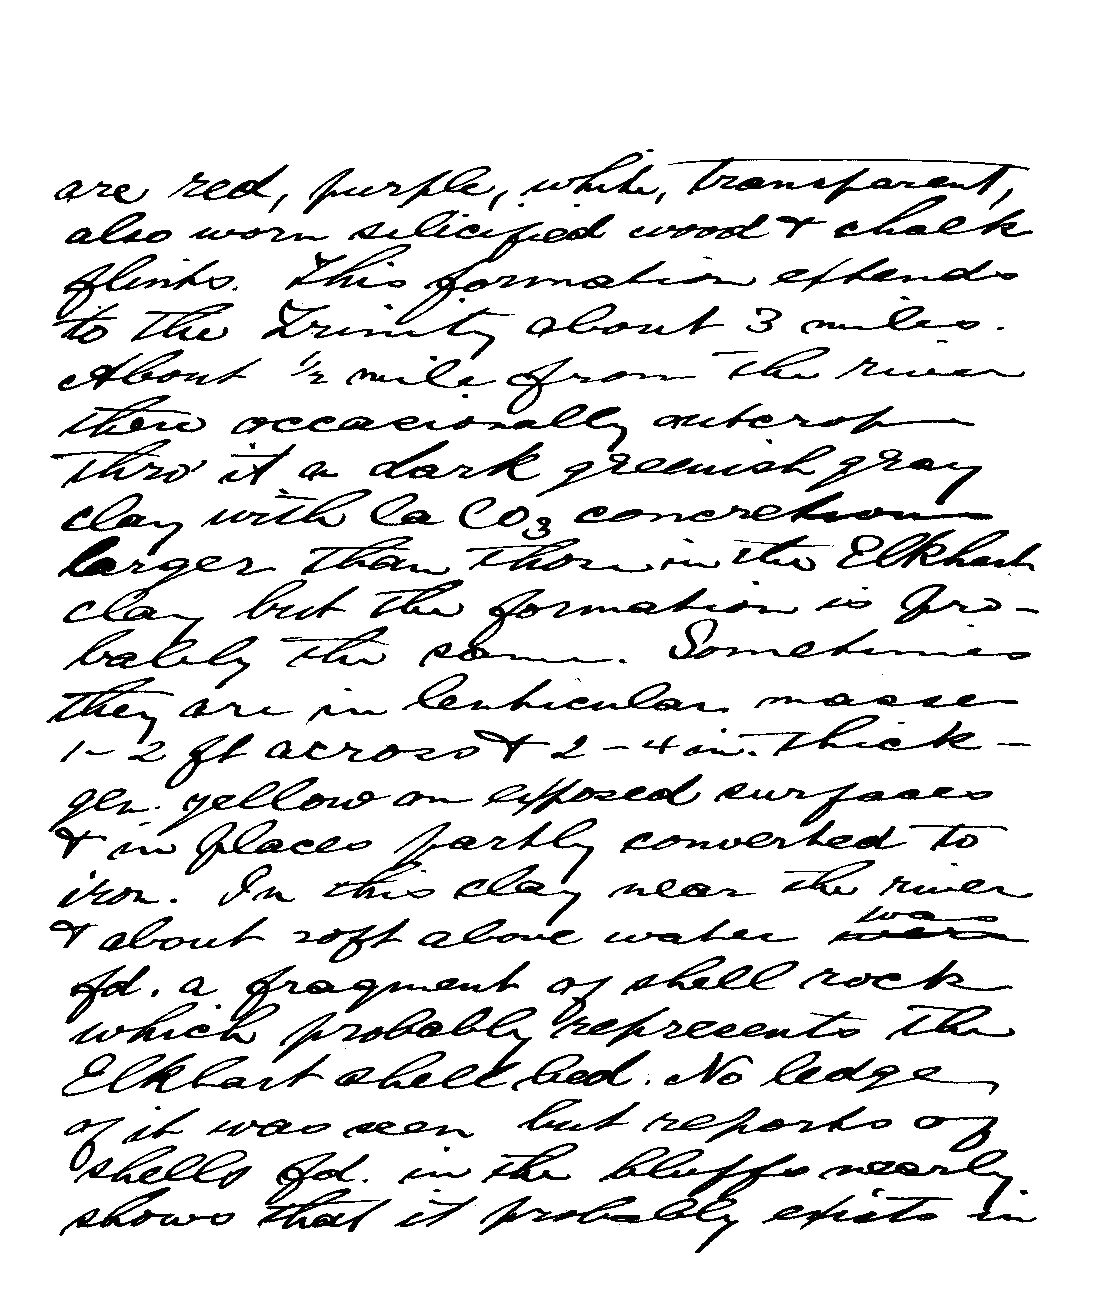 are red, purple, white, transparent,
also worn silicified wood & chalk
flints. This formation extends
to the Trinity about 3 miles.
About ½ mile from the river
there occasionally outcrop
thro' it a dark greenish gray
clay with Ca CO3 concretions
larger than those in the Elkhart
clay but the formation is pro-
bably the same. Sometimes
they are in lenticular masses
1-2 ft across & 2-4 in. thick -
gen. yellow on exposed surfaces
& in places partly converted to
iron. In this clay near the river
& about 20 ft above water was
fd. a fragment of shell rock
which probably represents the
Elkhart shell bed. No ledge
of it was seen but reports of
shells fd. in the bluffs nearly
shows that it probably exists in